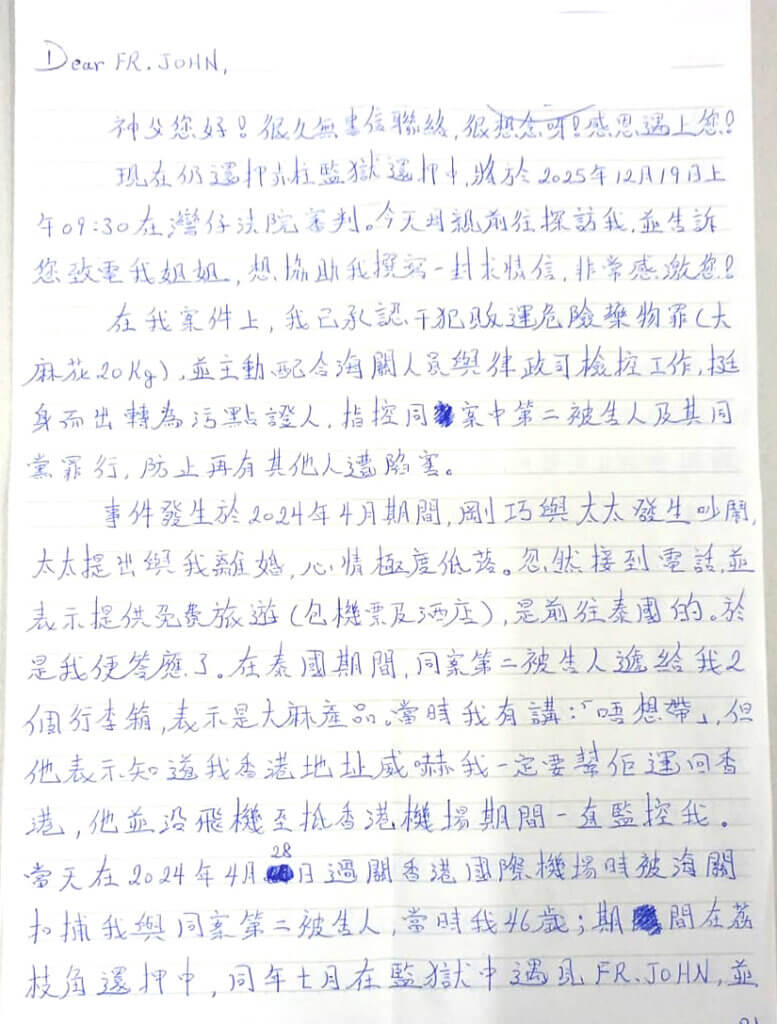 Dear FR. JOHN,
神父您好！很久無書信聯絡，很想念呀！感恩遇上您！
現在仍還押赤柱監獄還押中，將於2025年12月19日上
午09:30在灣仔法院審判。今天母親前往探訪我，並告訴
您致電我姐姐，想協助我撰寫一封求情信，非常感激您！
在我案件上，我已承認干犯販運危險藥物罪（大
麻花20Kg），並主動配合海關人員與律政司檢控工作，挺
身而出轉為污點證人，指控同案中第二被告人及其同
黨罪行，防止再有其他人遭陷害。
事件發生於2024年4月期間，剛巧與太太發生吵鬧，
太太提出與我離婚，心情極度低落。忽然接到電話，並
表示提供免費旅遊（包機票及酒店），是前往泰國的。於
是我便答應了。在泰國期間，同案第二被告人遞給我2
個行李箱，表示是大麻產品。當時我有講：「唔想帶」，但
他表示知道我香港地址威嚇我一定要幫佢運回香
港，他並沒飛機至抵香港機場期間一直監控我。
當天在2024年4月28日過關香港國際機場時被海關
扣捕我與同案第二被告人，當時我46歲；期間在荔
枝角還押中，同年七月在監獄中遇見FR.JOHN，並